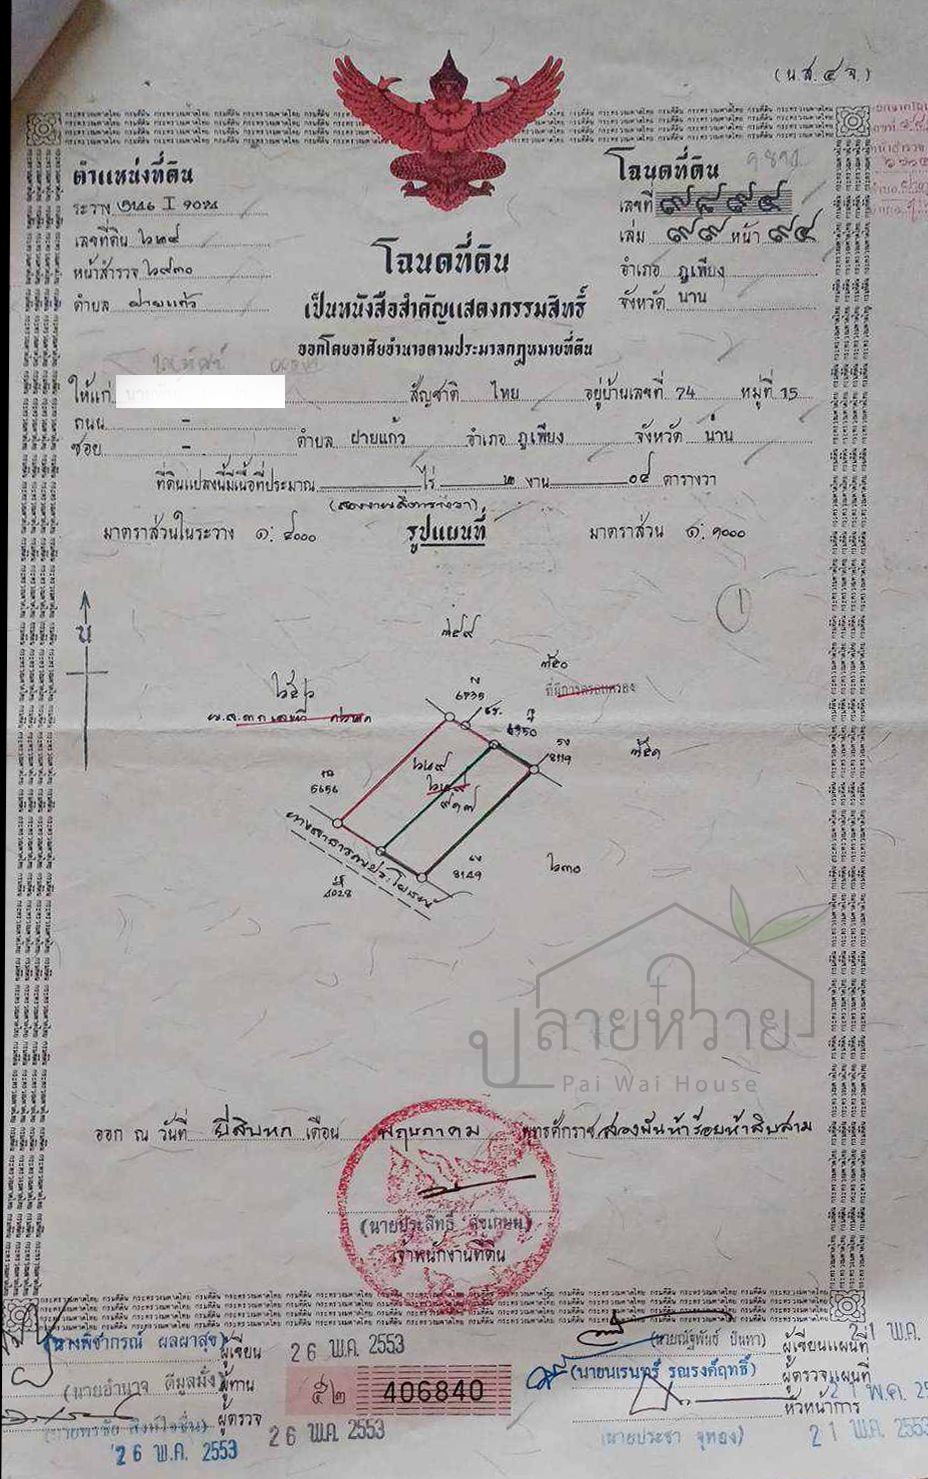 (น.ส.๔ จ.)
ตำแหน่งที่ดิน
ระวาง ๕๑๔๖ I ๑๐๗๘
เลขที่ดิน ๒๒๙
หน้าสำรวจ ๒๙๓๐
ตำบล ฝายแก้ว
โฉนดที่ดิน
เลขที่ ๙๘๙๔
เล่ม ๙๙ หน้า ๙๔
อำเภอ ภูเพียง
จังหวัด น่าน
โฉนดที่ดิน
เป็นหนังสือสำคัญแสดงกรรมสิทธิ์
ออกโดยอาศัยอำนาจตามประมวลกฎหมายที่ดิน
ให้แก่ สัญชาติ ไทย อยู่บ้านเลขที่ 74 หมู่ที่ 15
ถนน -
ซอย - ตำบล ฝายแก้ว อำเภอ ภูเพียง จังหวัด น่าน
ที่ดินแปลงนี้มีเนื้อที่ประมาณ ไร่ ๒ งาน ๐๔ ตารางวา
(สองงานสี่ตารางวา)
มาตราส่วนในระวาง ๑:๔๐๐๐ รูปแผนที่ มาตราส่วน ๑:๑๐๐๐
น
1
๓๔๙
๓๕๐
ที่มีการครอบครอง
๒๕๖
6735
6950
8119
๓๕๑
๒๒๙
๙๑๗
5656
ทางสาธารณประโยชน์
8149
๒๓๐
4028
ปลายหวาย
Pai Wai House
ออก ณ วันที่ ยี่สิบหก เดือน พฤษภาคม พุทธศักราช สองพันห้าร้อยห้าสิบสาม
(นายประสิทธิ์ สุขเกษม)
เจ้าพนักงานที่ดิน
(นางพิชากรณ์ ผลผาสุข) ผู้เขียน 26 พ.ค. 2553
(นายอำนาจ ดีมูลมั่ง) ผู้ทาน
(นายพรชัย สิงห์ใจชื่น) ผู้ตรวจ 26 พ.ค. 2553
26 พ.ค. 2553
๕๒ 406840
(นายณัฐพันธ์ ปันทา) ผู้เขียนแผนที่ 21 พ.ค.
(นายนเรนทร์ รณรงค์ฤทธิ์) ผู้ตรวจแผนที่
หัวหน้าการ 21 พ.ค. 25
(นายประชา จุทอง) 21 พ.ค. 2553